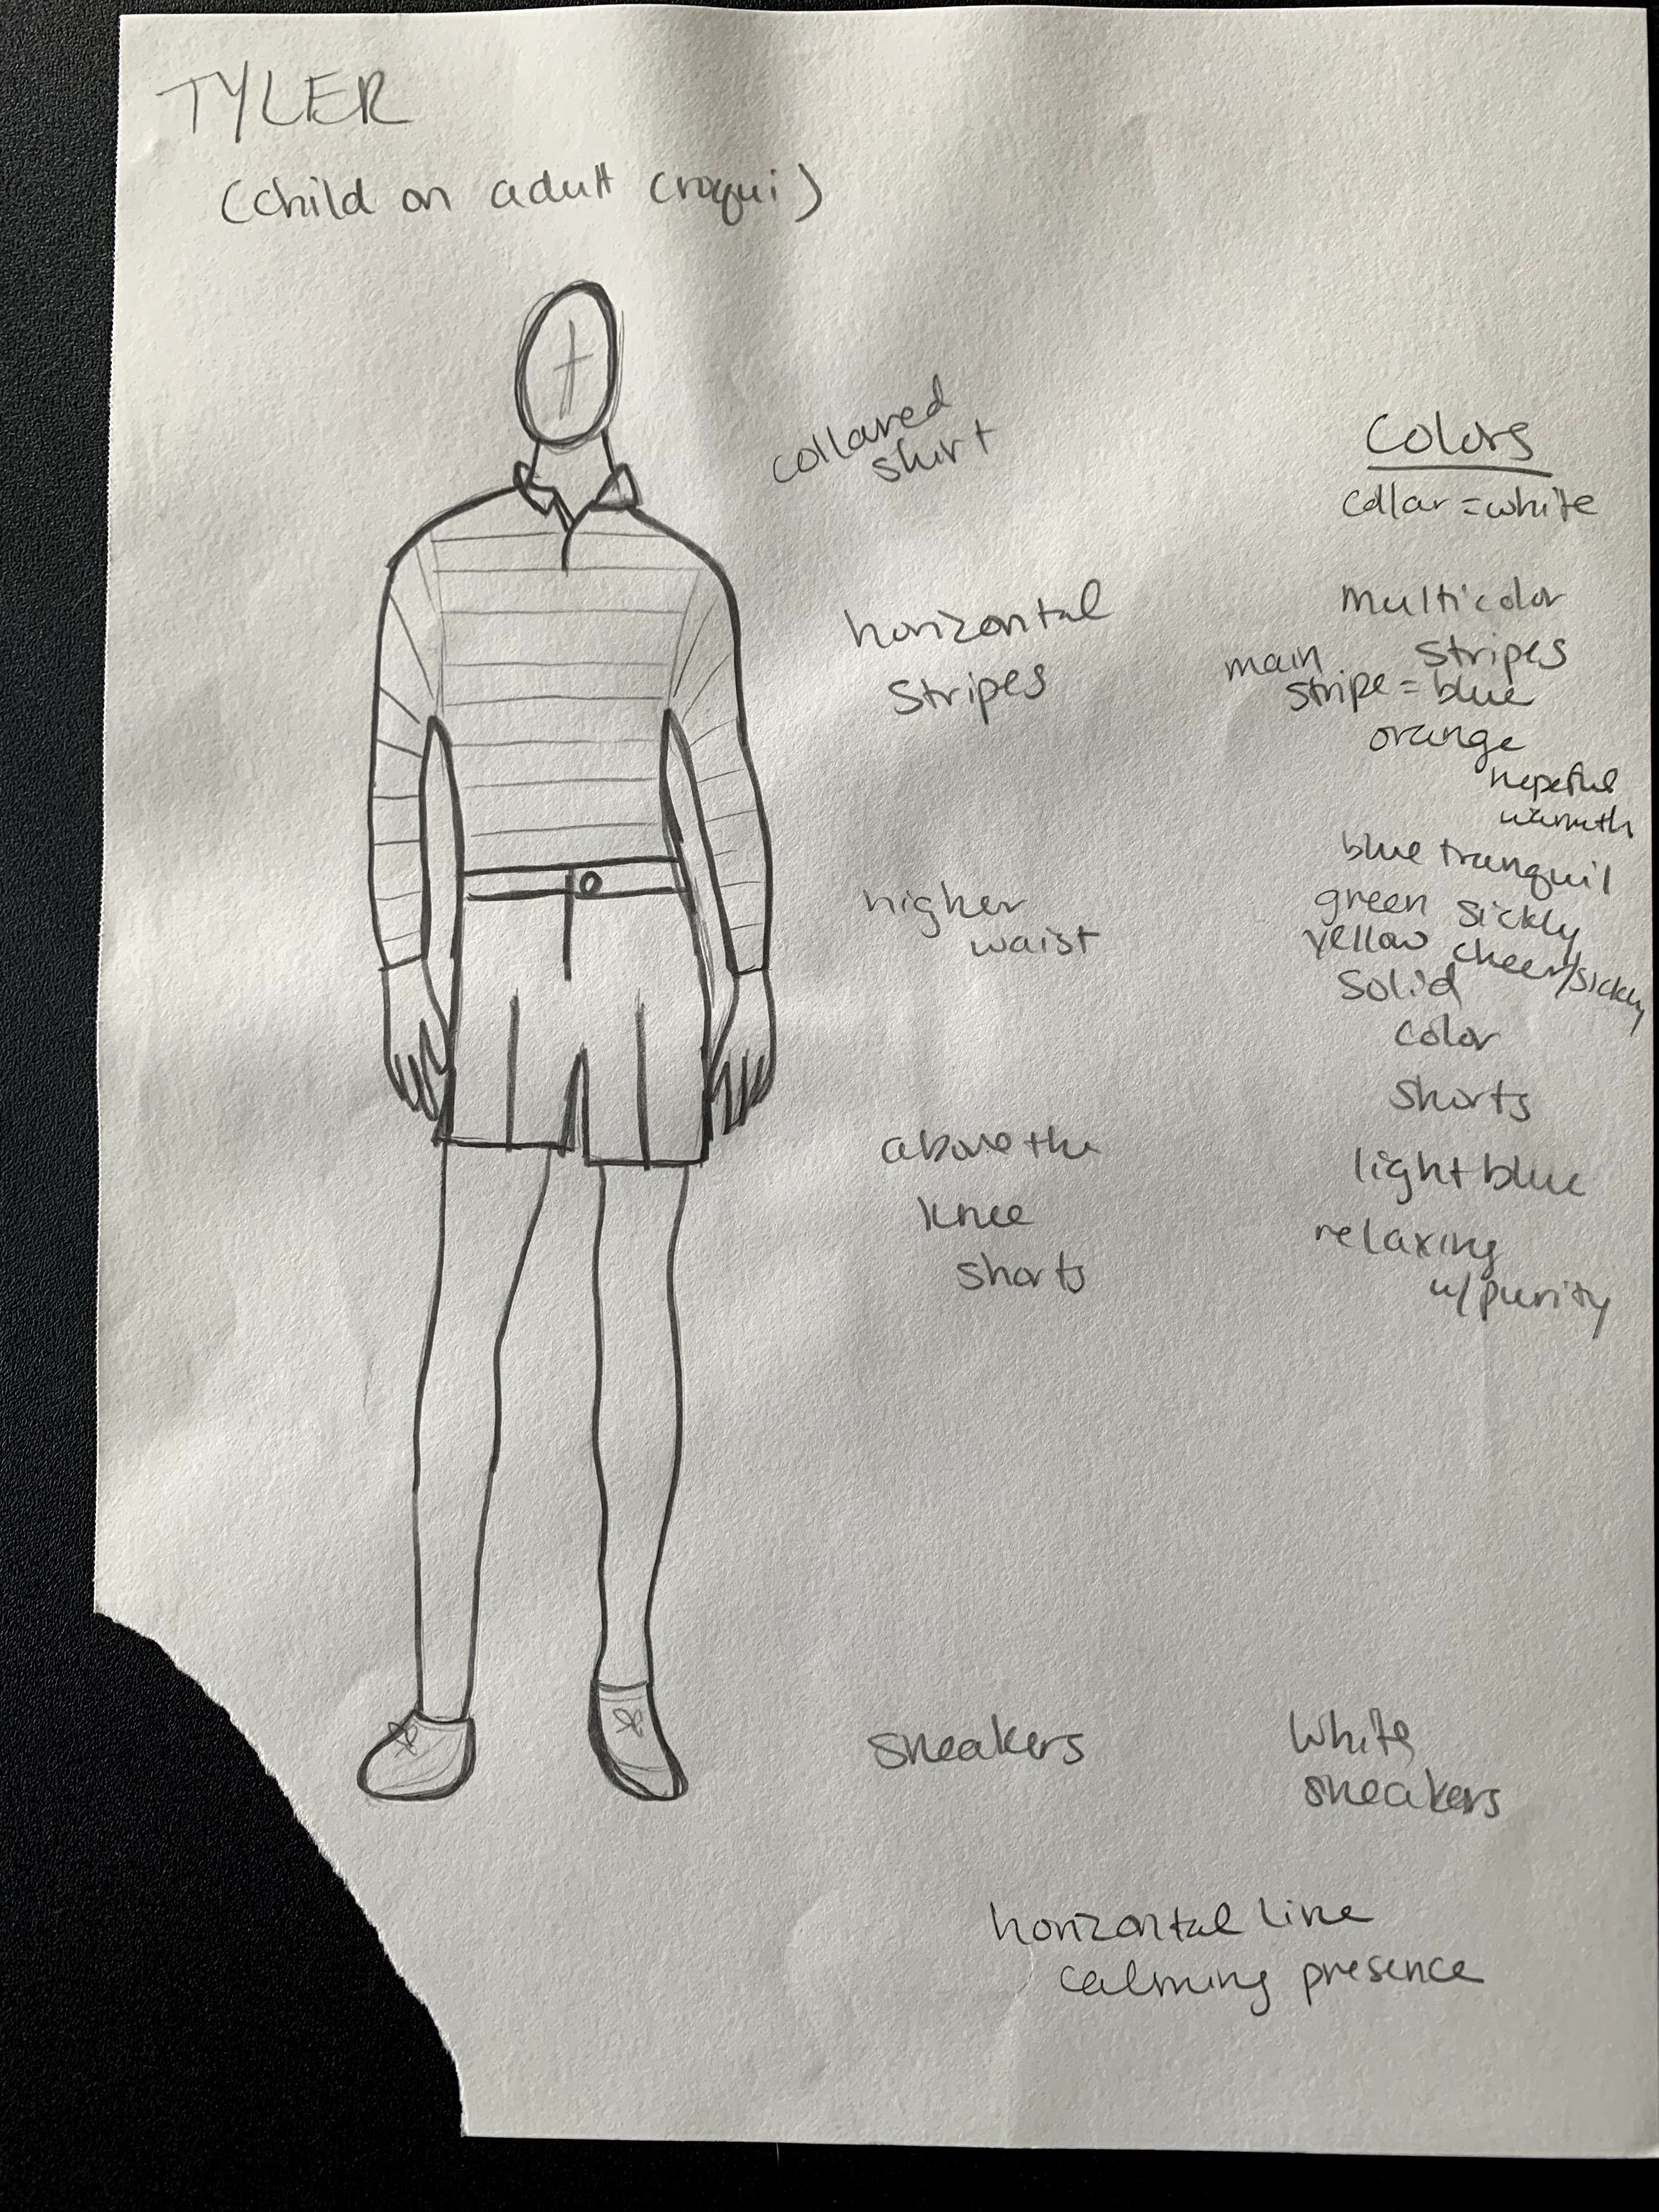 TYLER
(child on adult croqui)
collared
shirt
horizontal
stripes
higher
waist
above the
knee
shorts
sneakers
Colors
collar = white
multicolor
stripes
main
stripe = blue
orange
hopeful
warmth
blue tranquil
green sickly
yellow cheer/sickly
solid
color
shorts
light blue
relaxing
w/ purity
white
sneakers
horizontal line
calming presence